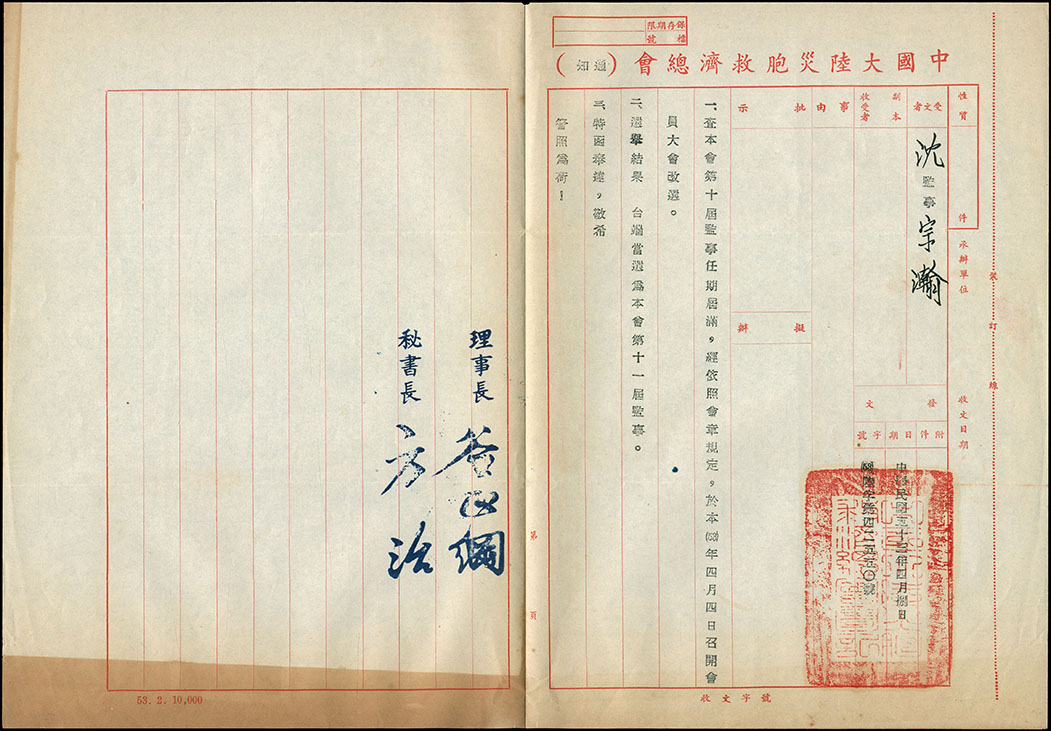 保存期限
檔號
中國大陸災胞救濟總會（通知）
性質
件
受文者
沈監事宗瀚
副本
收受者
事由
批示
擬辦
承辦單位
收文日期
發文
附件
日期
字號
中華民國五十三年四月捌日
一、查本會第十屆監事任期屆滿，經依照會章規定，於本(53)年四月四日召開會
員大會改選。
二、選舉結果　台端當選為本會第十一屆監事。
三、特函奉達，敬希
管照為荷！
理事長　谷正綱
秘書長　方治
裝
訂
線
第　頁
收文字號
53. 2. 10,000